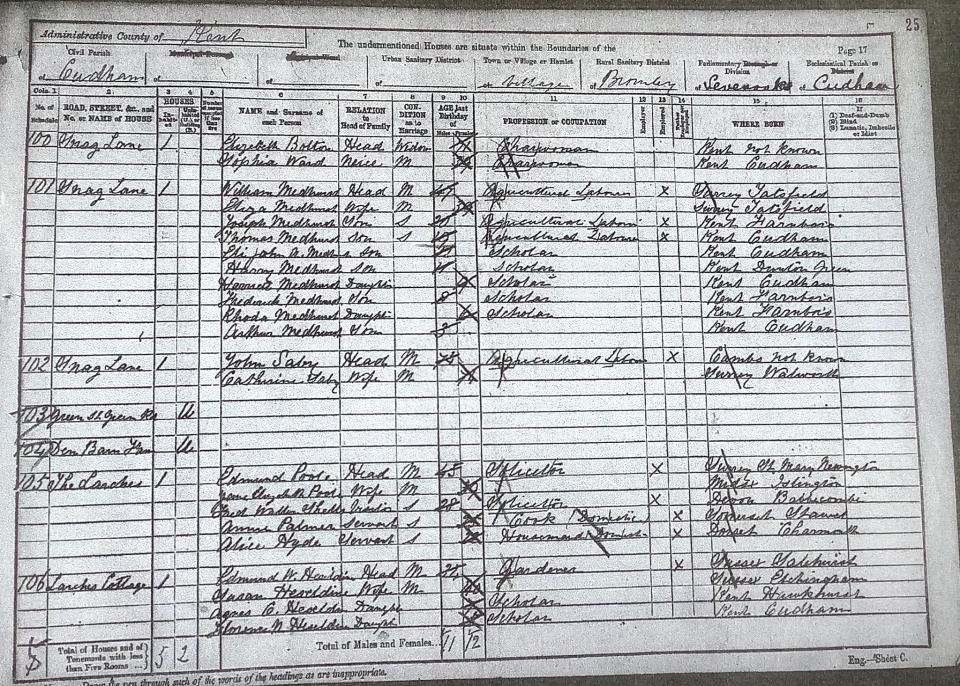 25
Administrative County of Kent
The undermentioned Houses are situate within the Boundaries of the
Page 17
Civil Parish
Municipal Borough
Urban Sanitary District
Town or Village or Hamlet
Rural Sanitary District
Parliamentary Borough or Division
Ecclesiastical Parish or District
of Cudham of of of of Village of Bromley of Sevenoaks of Cudham
Cols. 1 2 3 4 5 6 7 8 9 10 11 12 13 14 15 16
No. of Schedule ROAD, STREET, &c., and No. or NAME of HOUSE HOUSES NAME and Surname of each Person RELATION to Head of Family CONDITION as to Marriage AGE last Birthday of PROFESSION or OCCUPATION Employer Employed WHERE BORN (1) Deaf-and-Dumb (2) Blind (3) Lunatic, Imbecile or Idiot
100 Snag Lane 1 Elizabeth Bolton Head Widow Charwoman Kent not known
Sophia Ward Neice M Charwoman Kent Cudham
101 Snag Lane 1 William Medhurst Head M Agricultural Labourer x Surrey Tatsfield
Eliza Medhurst Wife M Surrey Tatsfield
Joseph Medhurst Son S Agricultural Labour x Kent Farnboro
Thomas Medhurst Son S 15 Agricultural Labourer x Kent Cudham
Eli John A. Medhurst Son Scholar Kent Cudham
Harry Medhurst Son Scholar Kent Dunton Green
Harriett Medhurst Daughter Scholar Kent Cudham
Frederick Medhurst Son 8 Scholar Kent Farnboro
Rhoda Medhurst Daughter Scholar Kent Farnboro
Arthur Medhurst Son 3 Kent Cudham
102 Snag Lane 1 John Saby Head M 78 Agricultural Labour x Cambs not known
Catharine Saby Wife M Surrey Walworth
103 Green St Green Rd U
104 Barn U
105 The Larches 1 Edmund Poole Head M 45 Solicitor x Surrey St Mary Newington
Jane Elizabeth Poole Wife M Middx Islington
Fred Walter Visitor S 28 Solicitor x Devon Babbecombe
Annie Palmer Servant S Cook (Domestic) x Somerset Stawel
Alice Hyde Servant S Housemaid Domestic x Dorset Charmouth
106 Larches Cottage 1 Edmund W. Heseldine Head M Gardener x Sussex Salehurst
Susan Heseldine Wife M Sussex Etchingham
Agnes C. Heselden Daught Scholar Kent Hawkhurst
Florence N. Heselden Daught Scholar Kent Cudham
5 Total of Houses and of Tenements with less than Five Rooms 5 2 Total of Males and Females... 11 12
Eng.—Sheet C.
Draw the pen through such of the words of the headings as are inappropriate.